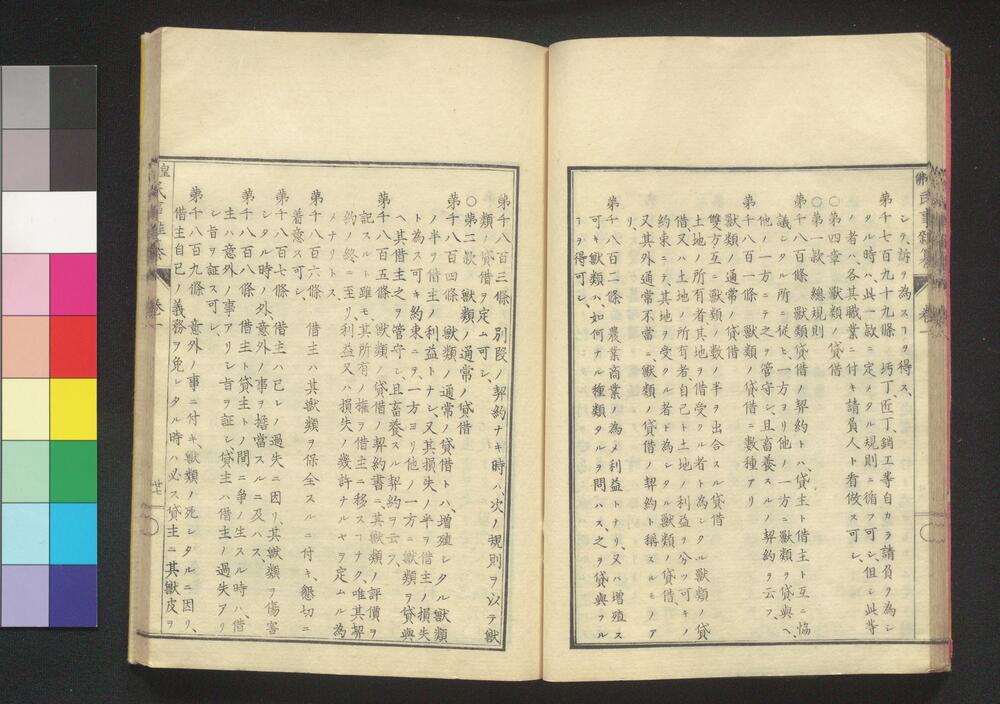 シヲ、訴ヲ為スヿヲ得ス、
第千七百九十九條　圬丁匠丁、銷工等自カラ請負ヲ為シ
タル時ハ、此一款ニ定メタル規則ニ循フ可シ、但シ此等
ノ者ハ、各其職業ニ付キ請負人ト看做ス可シ、
○第四章　獸類ノ貸借
○第一款　總規則
第千八百條　獸類貸借ノ契約トハ、貸主ト借主ト互ニ協
議シタル所ニ従ヒ、一方ヨリ他ノ一方ニ獸類ヲ貸與ヘ、
他ノ一方ニテ之ヲ管守シ、且畜養スルノ契約ヲ云フ、
第千八百一條　獸類ノ貸借ニ數種アリ
獸類ノ通常ノ貸借
雙方互ニ獸類ノ數ノ半ヲ出合スル貸借
土地ノ所有者、其地ヲ借受クル者ト為シタル獸類ノ貸
借又ハ土地ノ所有者、自己ト土地ノ利益ヲ分ツ可キノ
約束ニテ、其地ヲ受クル者ト為シタル獸類ノ貸借
又其外通常不當ニ、獸類ノ貸借ノ契約ト稱スルモノア
リ、
第千八百二條　農業商業ノ為メ利益トナリ、又ハ增殖ス
可キ獸類ハ、如何ナル種類タルヲ問ハス、之ヲ貸與フル
ヿヲ得可シ、
第千八百三條　別段ノ契約ナキ時ハ次ノ規則ヲ以テ獸
類ノ貸借ヲ定ム可シ、
○第二款　獸類ノ通常ノ貸借
第千八百四條　獸類ノ通常ノ貸借トハ、增殖シタル獸類
ノ半ヲ借主ノ利益トナシ、又其損失ノ半ヲ借主ノ損失
ト為ス可キ約束ニテ、一方ヨリ他ノ一方ニ獸類ヲ貸與
ヘ、其借主之ヲ管守シ且畜養スル契約ヲ云フ、
第千八百五條　獸類ノ貸借ノ契約書ニ、其獸類ノ評價ヲ
記スルト雖モ、其所有ノ權ヲ借主ニ移スヿナク唯其契
約ノ終ニ至リ、利益又ハ損失ノ幾許ナルヤヲ定ムル為
メナリトス、
第千八百六條　借主ハ其獸類ヲ保全スルニ付キ、懇切ニ
着意ス可シ、
第千八百七條　借主ハ已レノ過失ニ因リ、其獸類ヲ傷害
シタル時ノ外、意外ノ事ヲ擔當スルニ及ハス、
第千八百八條　借主ト貸主トノ間ニ争ノ生スル時ハ、借
主ハ意外ノ事アリシ旨ヲ証シ貸主ハ借主ノ過失アリ
シ旨ヲ証ス可シ、
第千八百九條　意外ノ事ニ付キ、獸類ノ死シタルニ因リ、
借主自已ノ義務ヲ免レタル時ハ必ス貸主ニ其獸皮ヲ
卷一
廿七